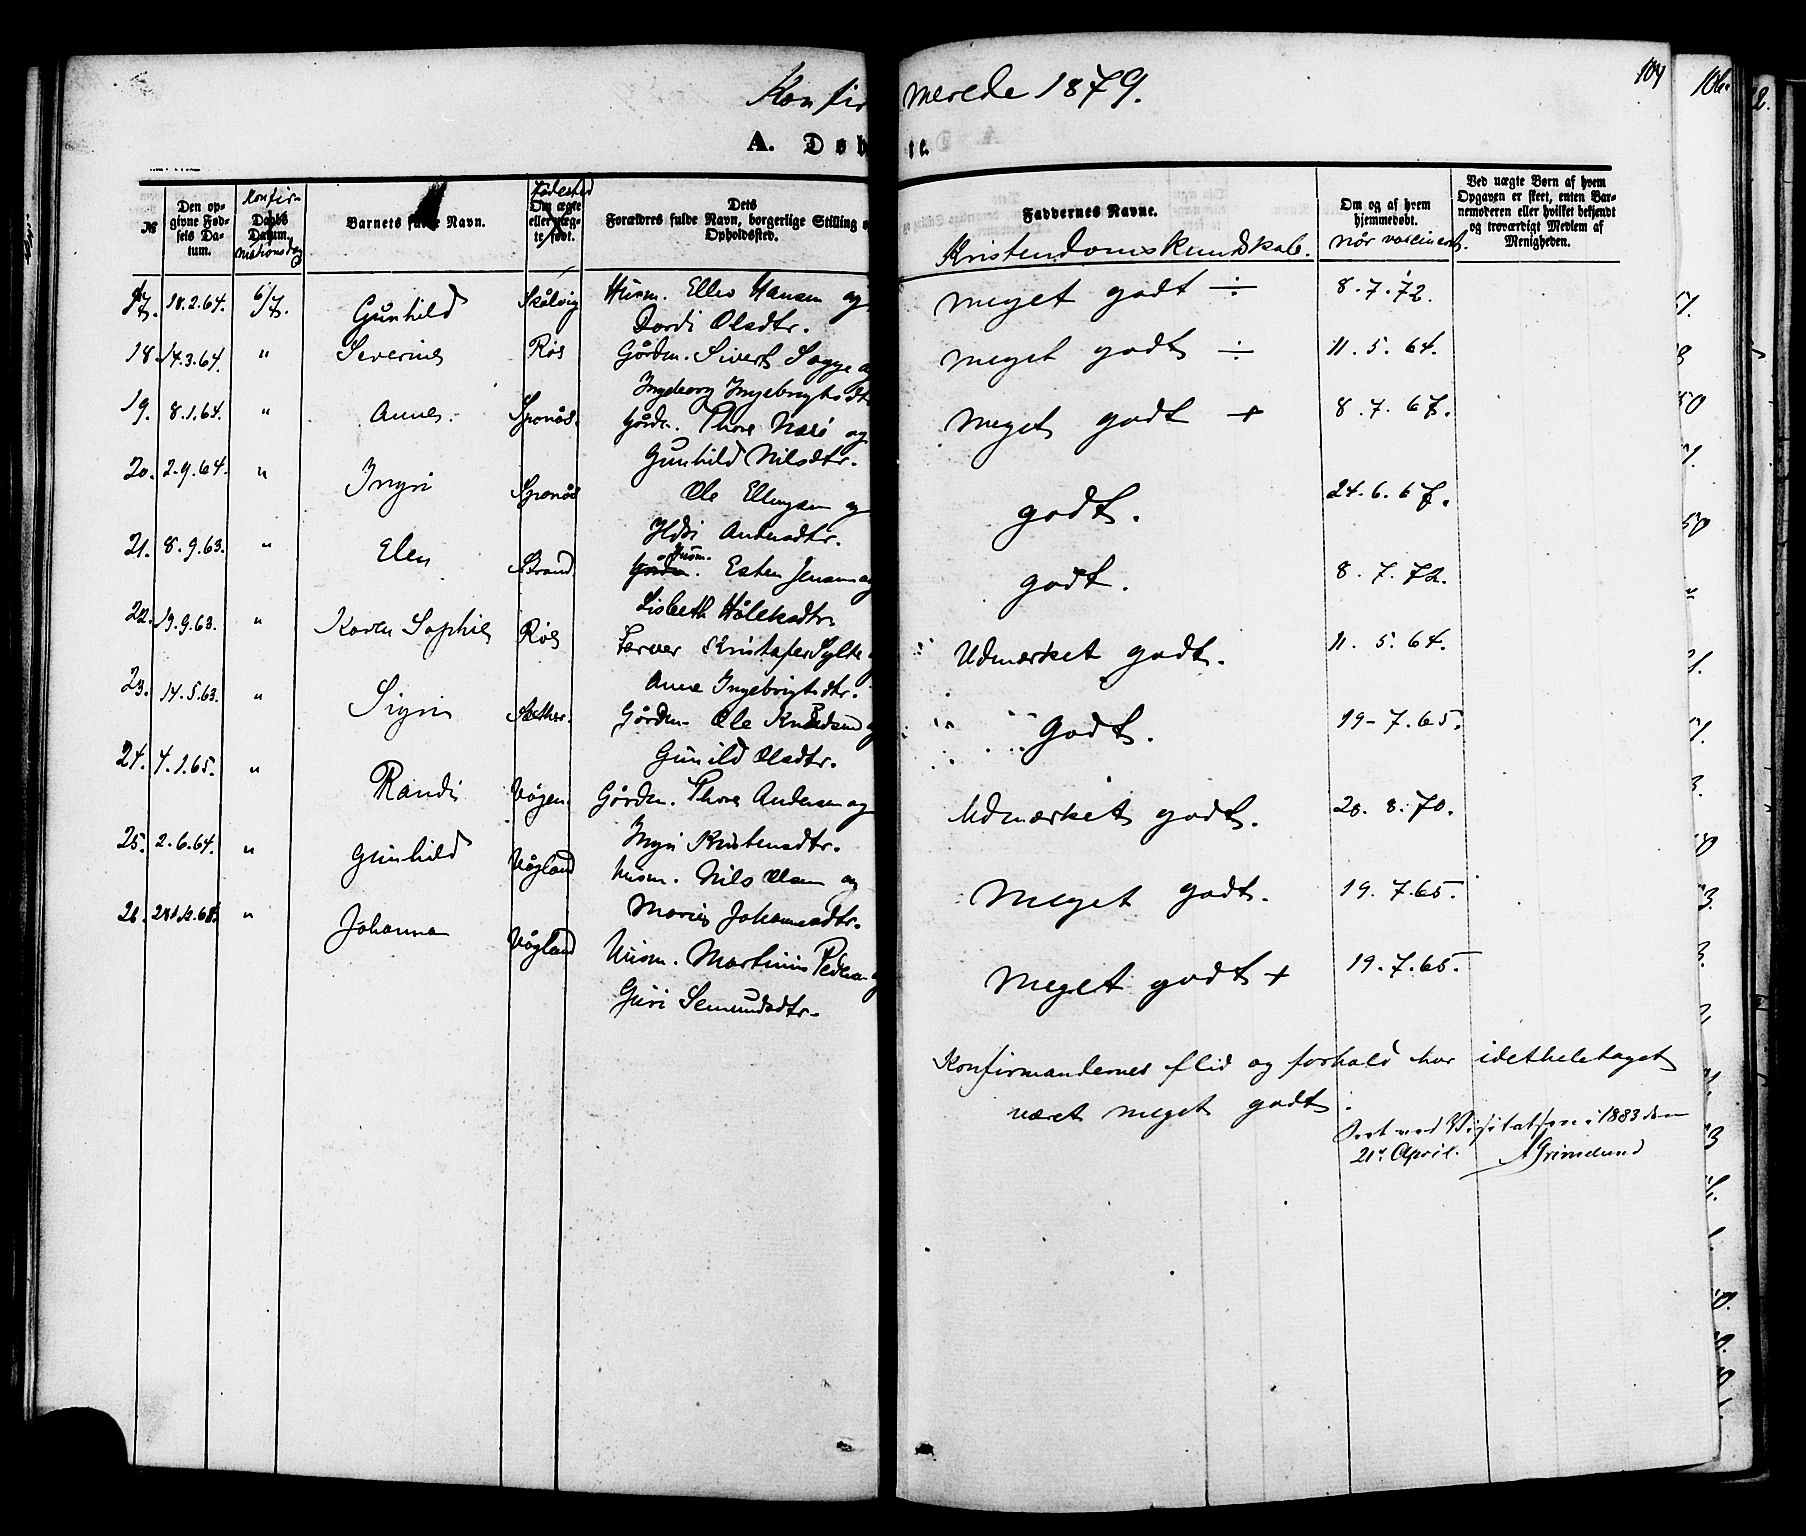 Konfirmerede 1879.
104
106.
A. Døbte.
№ | Den opgivne Fødsels Datum. | Konfirmationsdag Daabs Datum. | Barnets fulde Navn. | Fødested Om ægte eller uægte født. | Dets Forældres fulde Navn, borgerlige Stilling og Opholdssted. | Faddernes Navne. Kristendomskundskab. | Om og af hvem hjemmedøbt. når vaccineret. | Ved uægte Børn af hvem Opgaven er skeet, enten Barnemoderen eller hvilket bekjendt og troværdigt Medlem af Menigheden.
17. 18.2.64. 6/7. Gunhild Skålvig Husm. Ellev Hansen og meget godt ÷ 8.7.72.
Dordi Olsdtr.
18. 14.3.64. " Severine Røs Gårdm. Sivert Sogge og meget godt ÷ 11.5.64.
Ingeborg Ingebrigtsdtr
19. 8.1.64. " Anne Sponås. Gårdm. Thore Næss og meget godt + 8.7.67.
Gunhild Nilsdtr.
20. 2.9.64. " Ingri Sponås Ole Ellingsen og godt. 24.6.67.
Anders dtr.
21. 8.9.63. " Elen Strand Husm. Esten Jensen og godt. 8.7.72.
Lisbeth Håleksdtr.
22. 19.9.63. " Karen Sophie Røs Farver Kristofer Sylte Udmærket godt. 11.5.64.
Anne Ingebrigtsdtr.
23. 14.5.63. " Sigri Sæther. Gårdm. Ole Knudsen og godt. 19-7.65.
Gunild Olsdtr.
24. 4.1.65. " Randi Vågen. Gårdm. Thore Andersen og Udmærket godt. 20.8.70.
Ingri Kristensdtr.
25. 2.6.64. " Gunhild Vågland Husm. Nils Olsen og Meget godt. 19.7.65.
Marie Johannesdtr.
26. " Johanna Vågland Husm. Martinus Pedersen og Meget godt + 19.7.65.
Guri Semundsdtr.
Konfirmandernes flid og forhold har idetheletaget
været meget godt.
Seet ved Visitatsen i 1883 den
21de April. AGrimelund